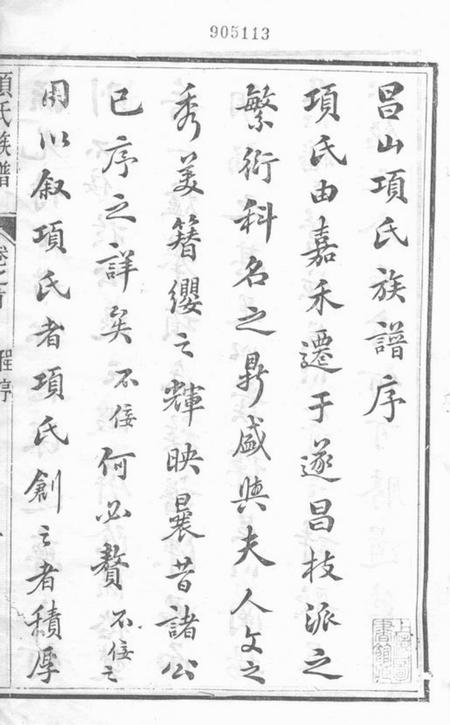 905113
昌山項氏族譜序
項氏由嘉禾遷于遂昌枝派之
繁衍科名之鼎盛與夫人文之
秀美簪纓之輝映曩昔諸公
已序之詳矣不佞何必贅不佞之
用以叙項氏者項氏創之者積厚
項氏族譜 卷之首 程序